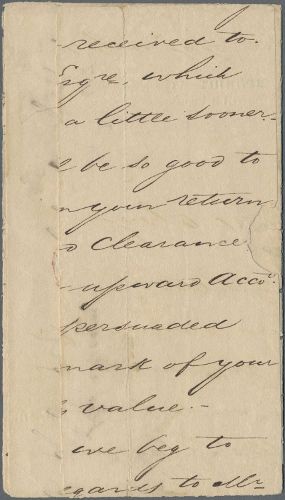 received to-
Esqre, which
a little sooner.-
be so good to
your return
Clearance
upward Acco.t
persuaded
mark of your
value.-
we beg to
regards to Mr